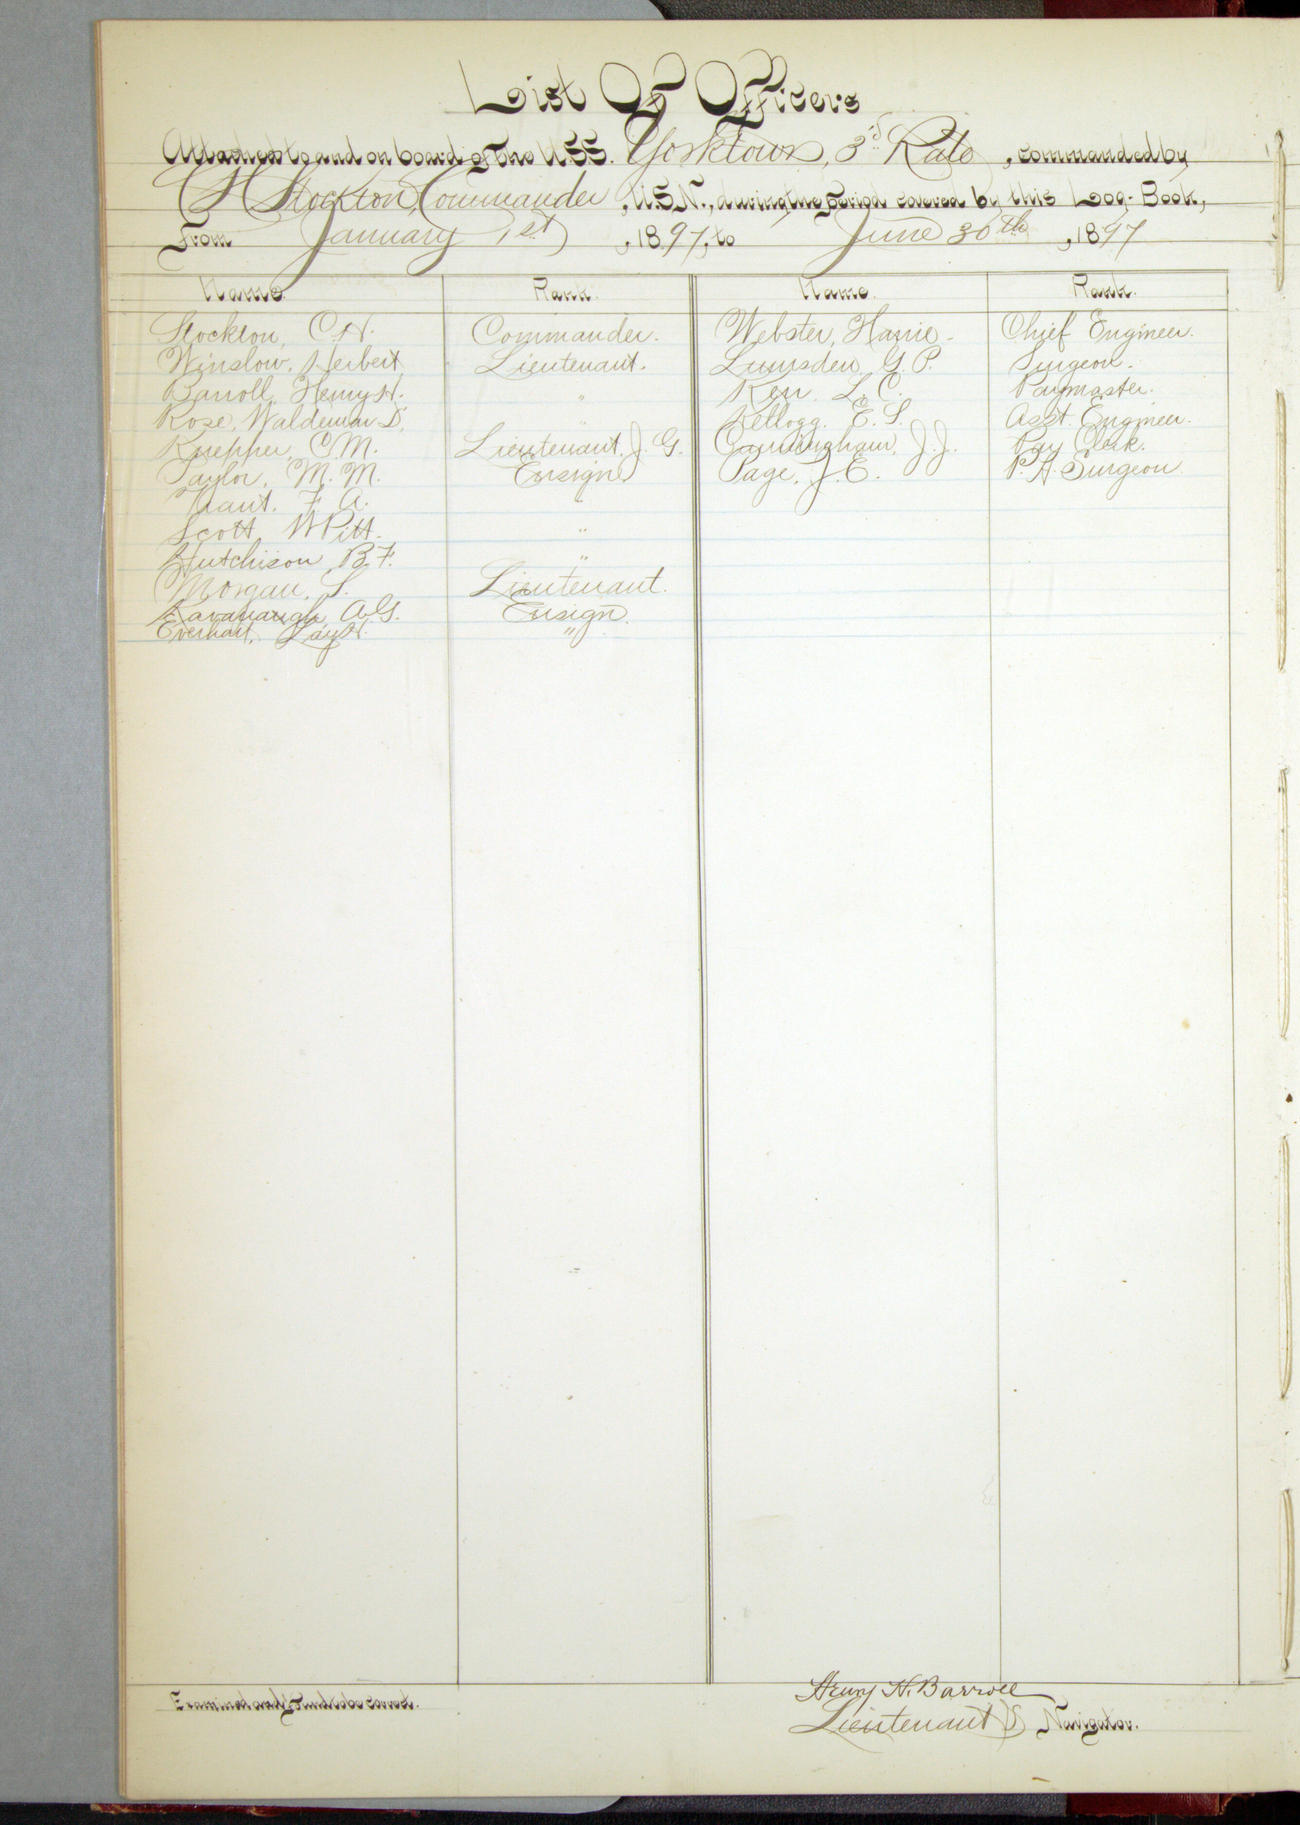 List Of Officers
Attached to and on board of the U.S.S. Yorktown, 3rd Rate, commanded by
C H Stockton, Commander, U.S.N., during the period covered by this Log-Book,
From January 1st, 1897, to June 30th, 1897
Name. Rank. Name. Rank.
Stockton, C.H. Commander. Webster, Harrie. Chief Engineer.
Winslow, Herbert Lieutenant. Lumsden, G. P. Surgeon.
Barroll, Henry H. " Kerr, L. C. Paymaster.
Rose, Waldemar D. " Kellogg, E. S. Asst. Engineer.
Knepper, C. M. Lieutenant, J. G. Cunningham, J. J. Pay Clerk.
Taylor, M. M. Ensign Page, J. E. P. A. Surgeon
Traut, F. A. "
Scott, W Pitt. "
Hutchison, B. F. "
Morgan, S. Lieutenant.
Kavanaugh, A. G. Ensign.
Everhart, Lay H. "
Examined and found to be correct.
Henry H. Barroll
Lieutenant & Navigator.